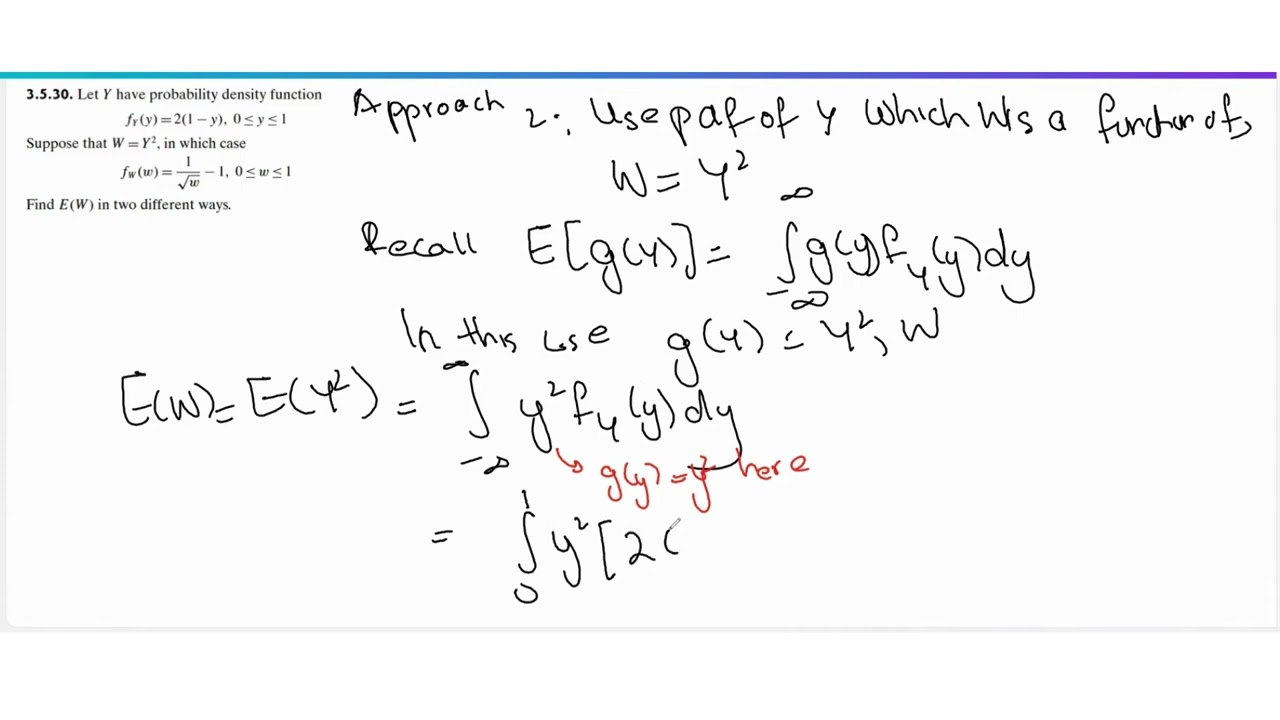 3.5.30. Let Y have probability density function
f_Y(y)=2(1−y), 0≤y≤1
Suppose that W=Y², in which case
f_W(w)=1/√w −1, 0≤w≤1
Find E(W) in two different ways.
Approach 2: Use pdf of Y which W is a function of,
W = Y²
Recall E[g(Y)] = ∫_{-∞}^{∞} g(y)f_Y(y)dy
In this case g(Y) = Y², W
E(W) = E(Y²) = ∫_{-∞}^{∞} y² f_Y(y)dy
g(y) = y² here
= ∫_0^1 y² [2(